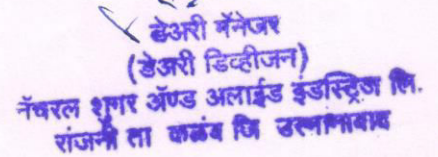 डेअरी मॅनेजर
(डेअरी डिव्हीजन)
नॅचरल शुगर ॲण्ड अलाईड इंडस्ट्रिज लि.
रांजनी ता कळंब जि उस्मानाबाद